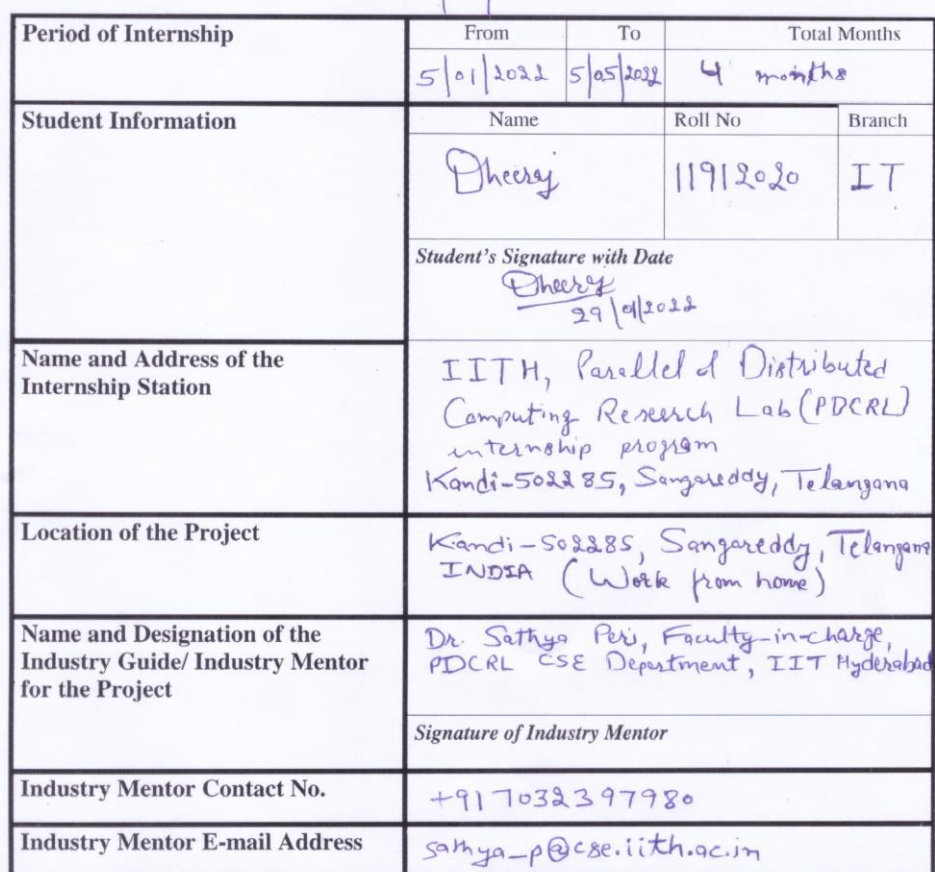 Period of Internship
From To Total Months
5/01/2022 5/05/2022 4 months
Student Information
Name Roll No Branch
Dheeraj 11912020 IT
Student's Signature with Date
Dheeraj
29/01/2022
Name and Address of the
Internship Station
IITH, Parallel & Distributed
Computing Research Lab (PDCRL)
internship program
Kandi-502285, Sangareddy, Telangana
Location of the Project
Kandi-502285, Sangareddy, Telangana
INDIA (Work from home)
Name and Designation of the
Industry Guide/ Industry Mentor
for the Project
Dr. Sathya Peri, Faculty-in-charge,
PDCRL CSE Department, IIT Hyderabad
Signature of Industry Mentor
Industry Mentor Contact No.
+91 7032397980
Industry Mentor E-mail Address
sathya_p@cse.iith.ac.in